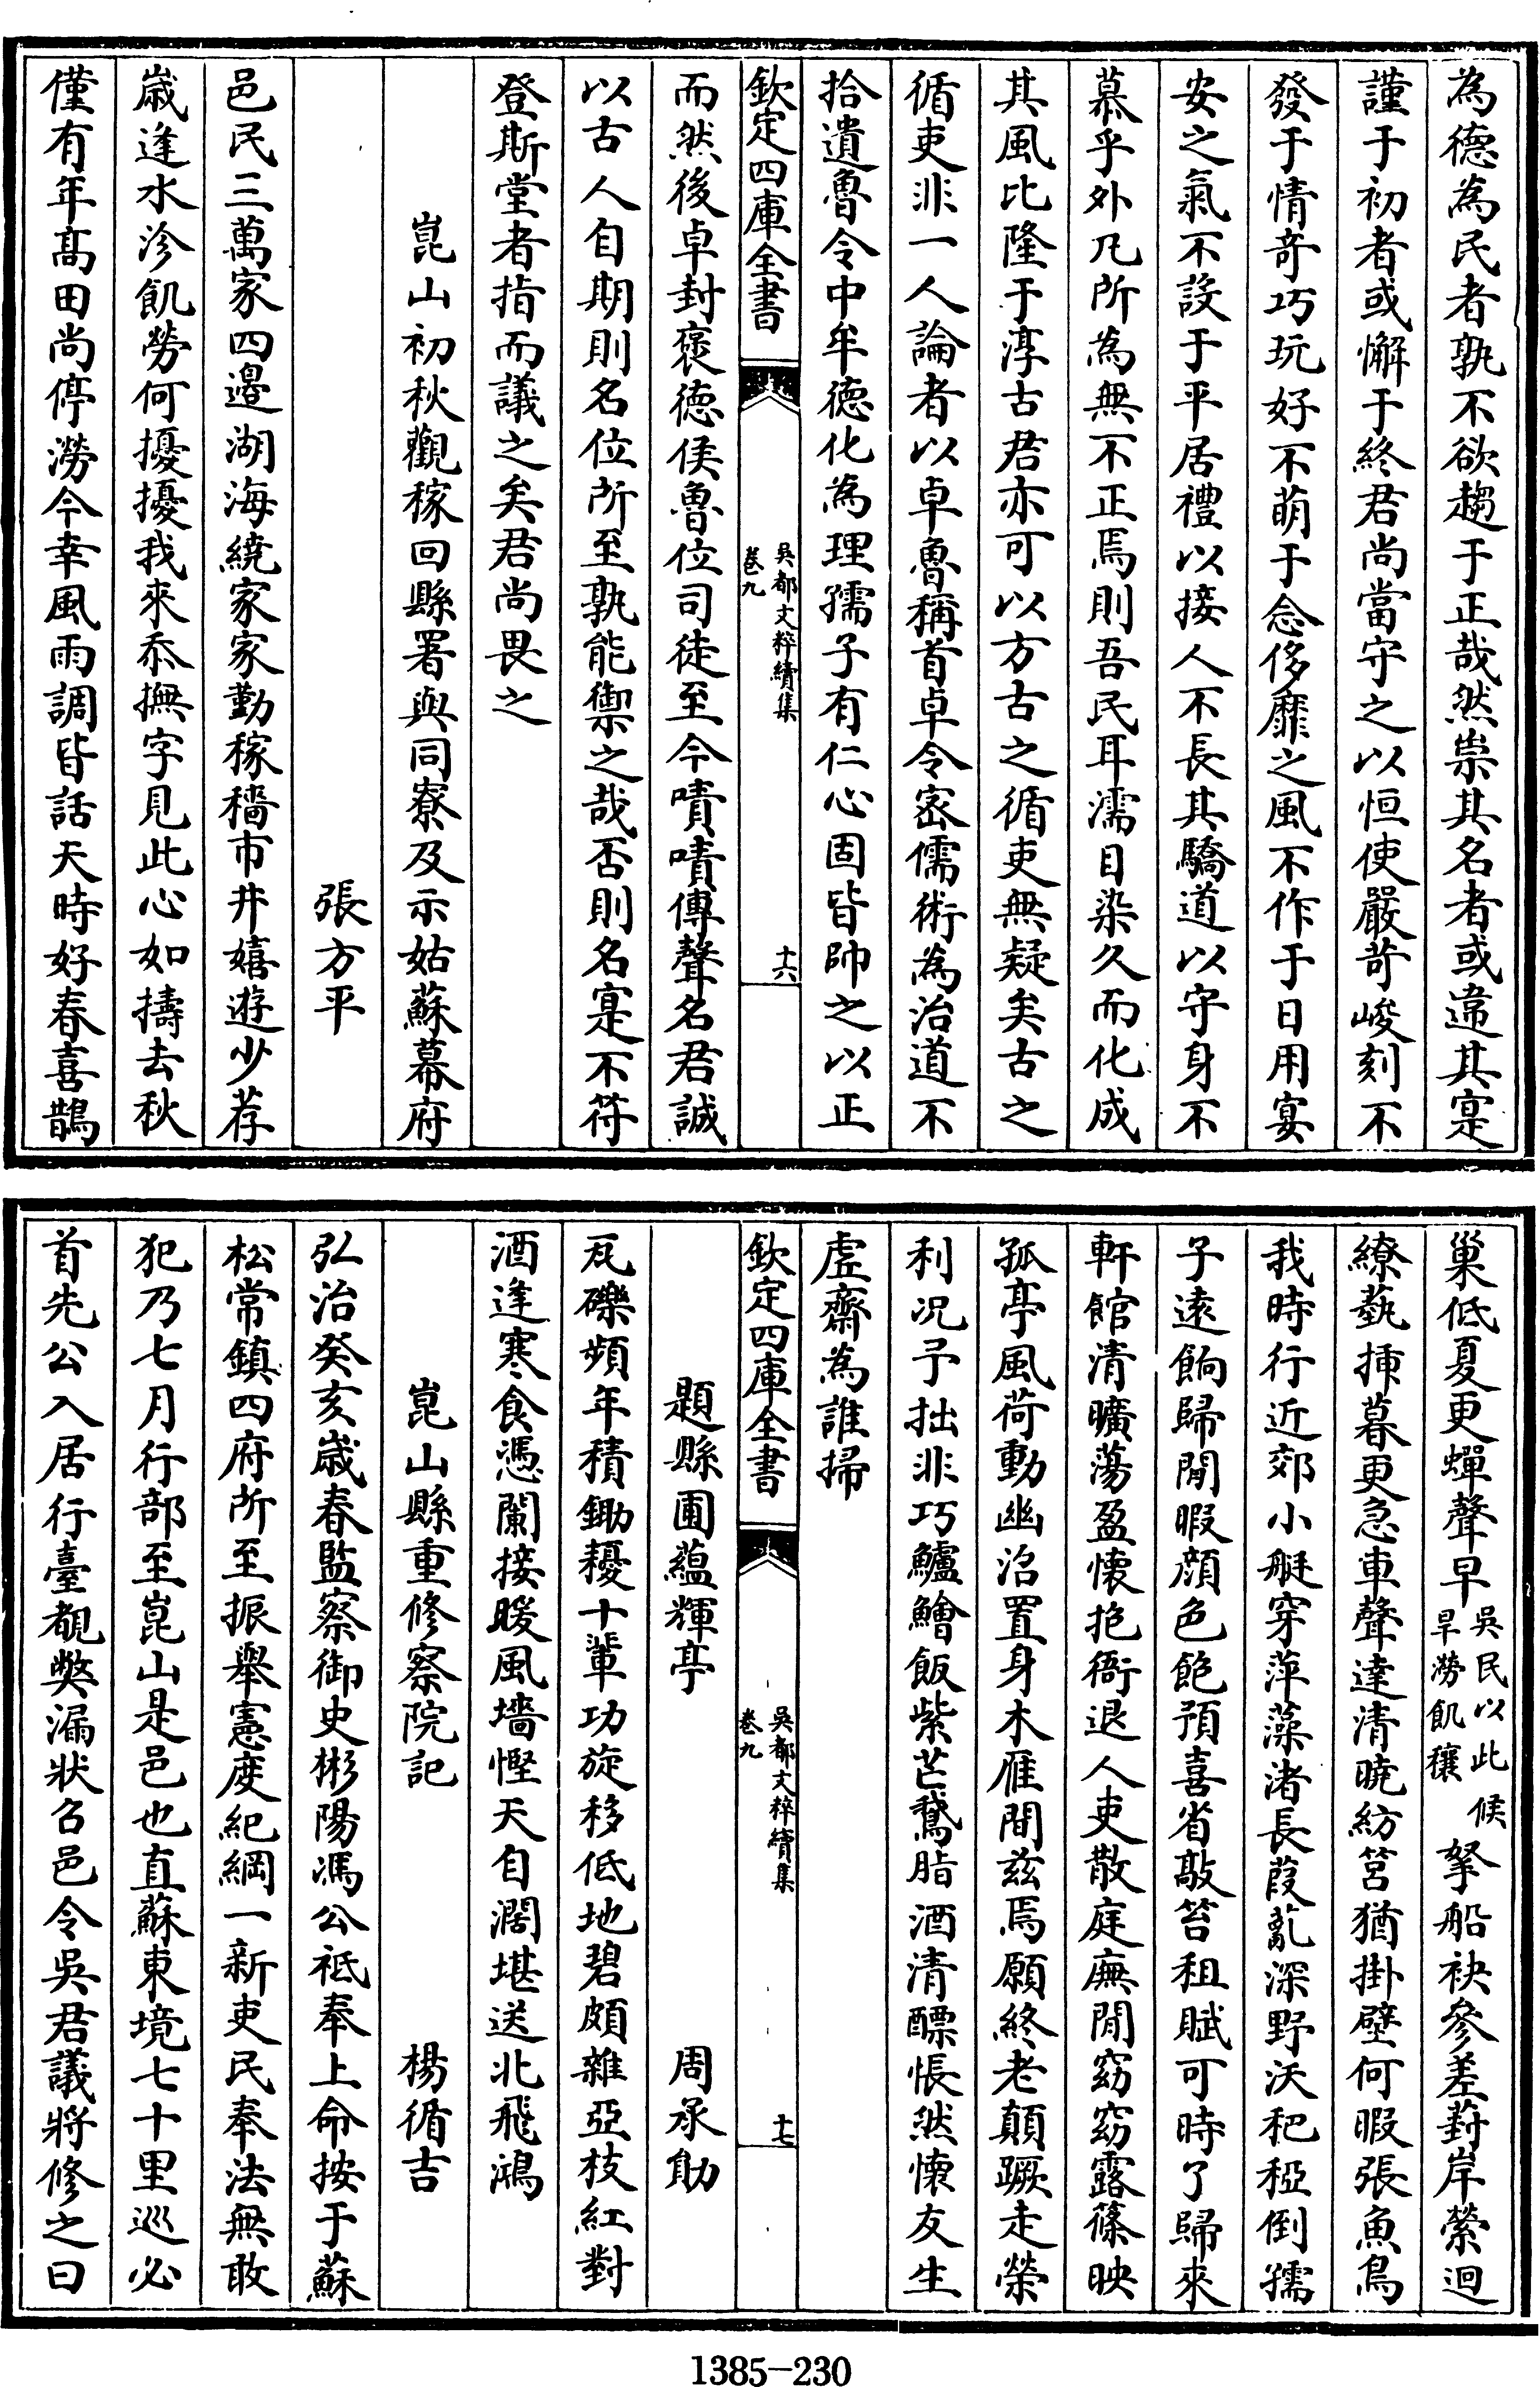 為德為民者孰不欲趨于正哉然崇其名者或違其寔
謹于初者或懈于終君尚當守之以恒使嚴苛峻刻不
發于情竒巧玩好不萌于念侈靡之風不作于日用宴
安之氣不設于平居禮以接人不長其驕道以守身不
慕乎外凡所為無不正焉則吾民耳濡目染久而化成
其風比隆于淳古君亦可以方古之循吏無疑矣古之
循吏非一人論者以卓魯稱首卓令宻儒術為治道不
拾遺魯令中牟德化為理孺子有仁心固皆帥之以正
欽定四庫全書
吳都文粹續集
卷九
十六
而然後卓封褒德侯魯位司徒至今嘖嘖傳聲名君誠
以古人自期則名位所至孰能禦之哉否則名寔不符
登斯堂者指而議之矣君尚畏之
崑山初秋觀稼回縣署與同寮及示姑蘇幕府
張方平
邑民三萬家四邊湖海繞家家勤稼穡市井嬉遊少荐
歳逢水沴飢勞何擾擾我來忝撫字見此心如擣去秋
僅有年髙田尚停澇今幸風雨調皆話天時好春喜鵲
巢低夏更蟬聲早
吳民以此候
旱澇飢穰
拏船袂參差葑岸縈迴
繚蓺揷暮更急車聲達清曉紡筥猶掛壁何暇張魚鳥
我時行近郊小艇穿萍藻渚長葭亂深野沃秅稏倒孺
子逺餉歸閒暇顔色飽預喜省敲笞租賦可時了歸來
軒館清曠蕩盈懐抱衙退人吏散庭廡閒窈窈露篠映
孤亭風荷動幽沼置身木雁間兹焉願終老顛蹶走榮
利况予拙非巧鱸鱠飯紫芒鵞脂酒清醥悵然懐友生
虚齋為誰掃
欽定四庫全書
吳都文粹續集
卷九
十七
題縣圃蘊輝亭
周承勛
瓦礫頻年積鋤耰十輩功旋移低地碧頗雜亞枝紅對
酒逢寒食憑闌接暖風墻慳天自濶堪送北飛鴻
崑山縣重修察院記
楊循吉
弘治癸亥歳春監察御史彬陽馮公祗奉上命按于蘇
松常鎮四府所至振舉憲度紀綱一新吏民奉法無敢
犯乃七月行部至崑山是邑也直蘇東境七十里巡必
首先公入居行臺覩獘漏狀召邑令吳君議將修之曰
1385-230